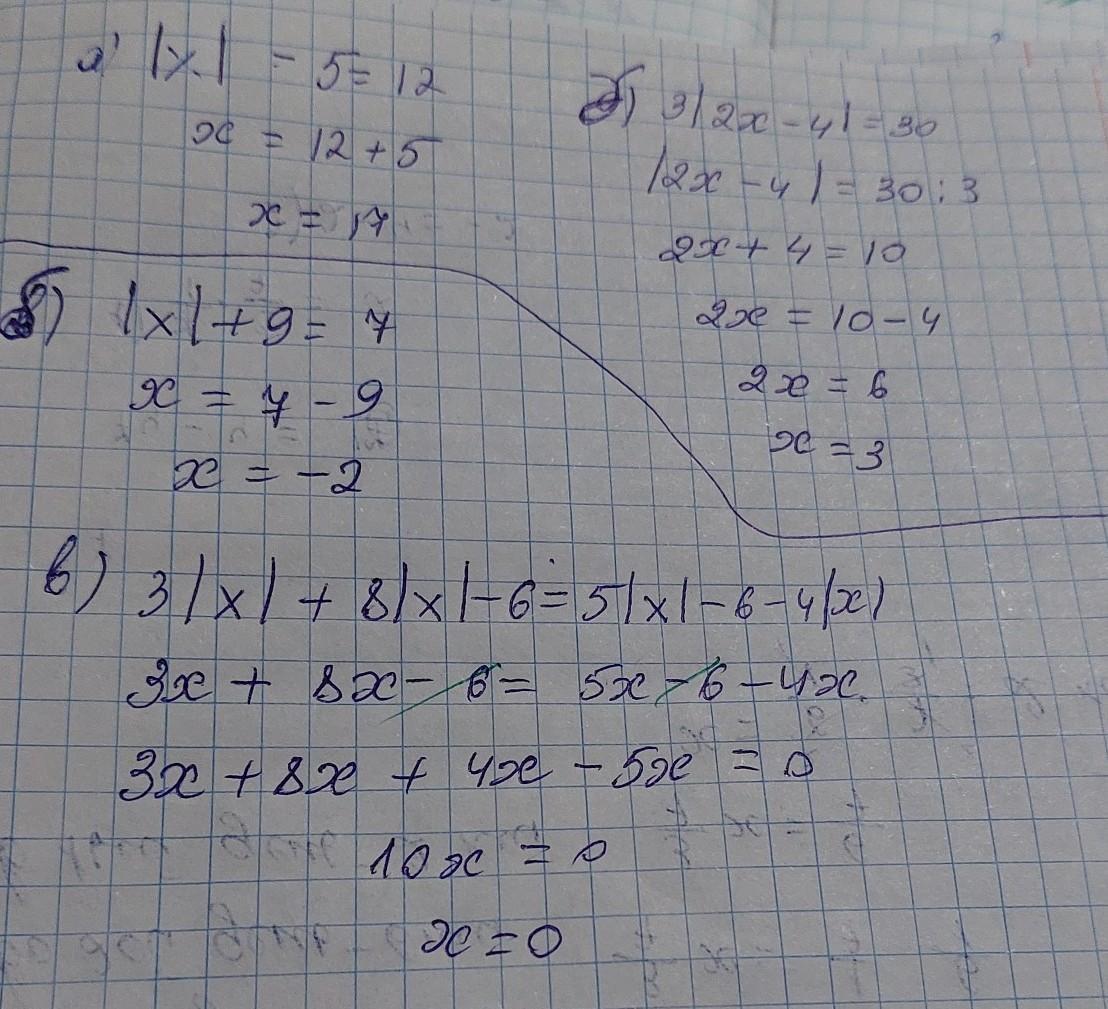 а) |x| - 5 = 12
x = 12 + 5
x = 17
б) |x| + 9 = 7
x = 7 - 9
x = -2
б) 3|2x - 4| = 30
|2x - 4| = 30 : 3
2x + 4 = 10
2x = 10 - 4
2x = 6
x = 3
в) 3|x| + 8|x| - 6 = 5|x| - 6 - 4|x|
3x + 8x - 6 = 5x - 6 - 4x
3x + 8x + 4x - 5x = 0
10x = 0
x = 0